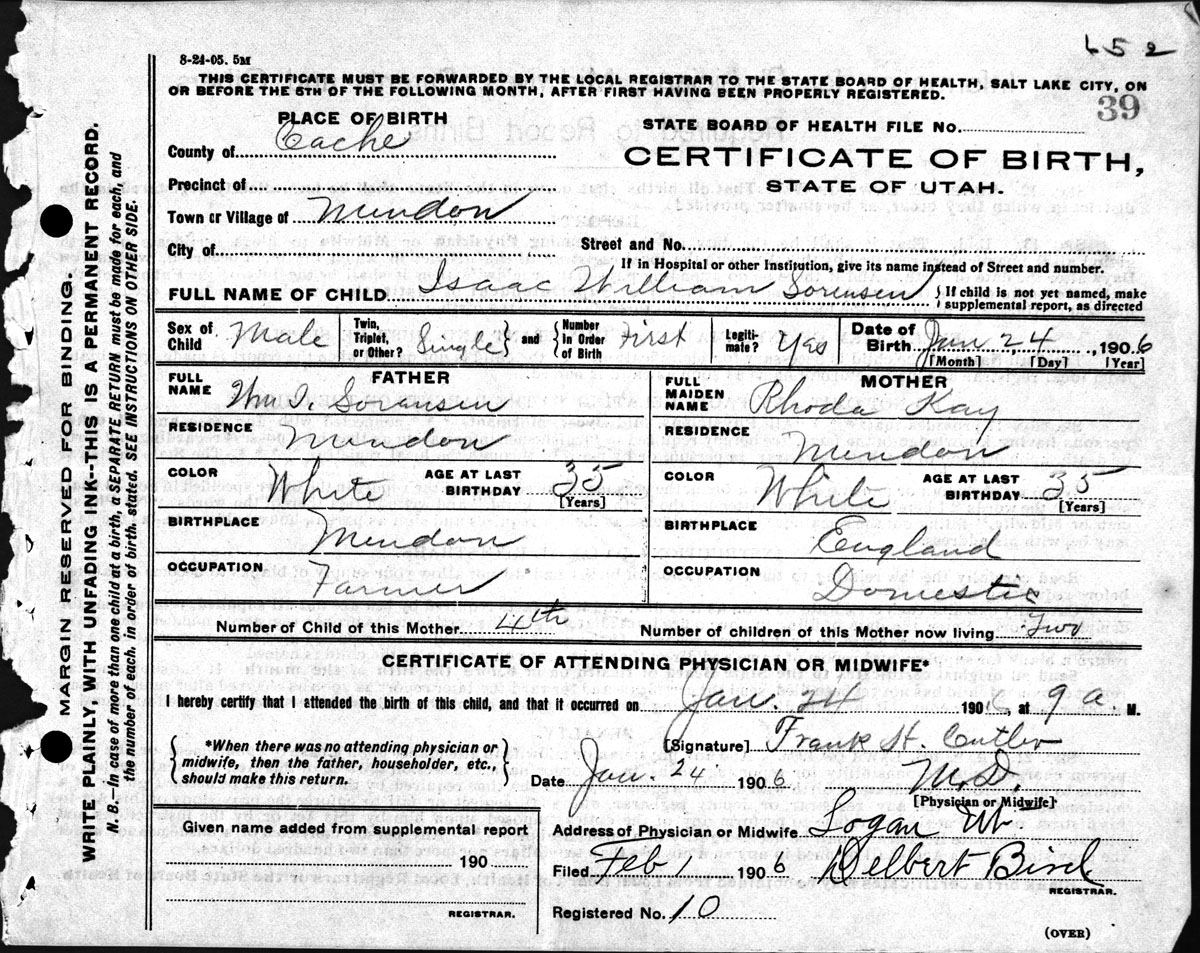 652
8-24-05. 5M
THIS CERTIFICATE MUST BE FORWARDED BY THE LOCAL REGISTRAR TO THE STATE BOARD OF HEALTH, SALT LAKE CITY, ON
OR BEFORE THE 5TH OF THE FOLLOWING MONTH, AFTER FIRST HAVING BEEN PROPERLY REGISTERED.
39
PLACE OF BIRTH
STATE BOARD OF HEALTH FILE No.
County of Cache
CERTIFICATE OF BIRTH,
STATE OF UTAH.
Precinct of
Town or Village of Mendon
Street and No.
City of
If in Hospital or other Institution, give its name instead of Street and number.
FULL NAME OF CHILD Isaac William Sorensen { If child is not yet named, make
supplemental report, as directed
Sex of Child Male
Twin, Triplet, or Other? Single } and { Number In Order of Birth First
Legiti-mate? Yas
Date of Birth Jan. 24, 1906
[Month] [Day] [Year]
FATHER
FULL NAME Wm I. Soransen
RESIDENCE Mendon
COLOR White AGE AT LAST BIRTHDAY 35
[Years]
BIRTHPLACE Mendon
OCCUPATION Farmer
MOTHER
FULL MAIDEN NAME Rhoda Kay
RESIDENCE Mendon
COLOR White AGE AT LAST BIRTHDAY 35
[Years]
BIRTHPLACE England
OCCUPATION Domestic
Number of Child of this Mother 4th
Number of children of this Mother now living Two
CERTIFICATE OF ATTENDING PHYSICIAN OR MIDWIFE*
I hereby certify that I attended the birth of this child, and that it occurred on Jan. 24 1906, at 9 a. M.
{ *When there was no attending physician or
midwife, then the father, householder, etc.,
should make this return. }
[Signature] Frank H. Cutler
Date Jan. 24 1906 M.D.
[Physician or Midwife]
Given name added from supplemental report
190
REGISTRAR.
Address of Physician or Midwife Logan Ut
Filed Feb 1 1906 Delbert Bird
REGISTRAR.
Registered No. 10
(OVER)
MARGIN RESERVED FOR BINDING.
WRITE PLAINLY, WITH UNFADING INK--THIS IS A PERMANENT RECORD.
N. B.—In case of more than one child at a birth, a SEPARATE RETURN must be made for each, and
the number of each. in order of birth. stated. SEE INSTRUCTIONS ON OTHER SIDE.